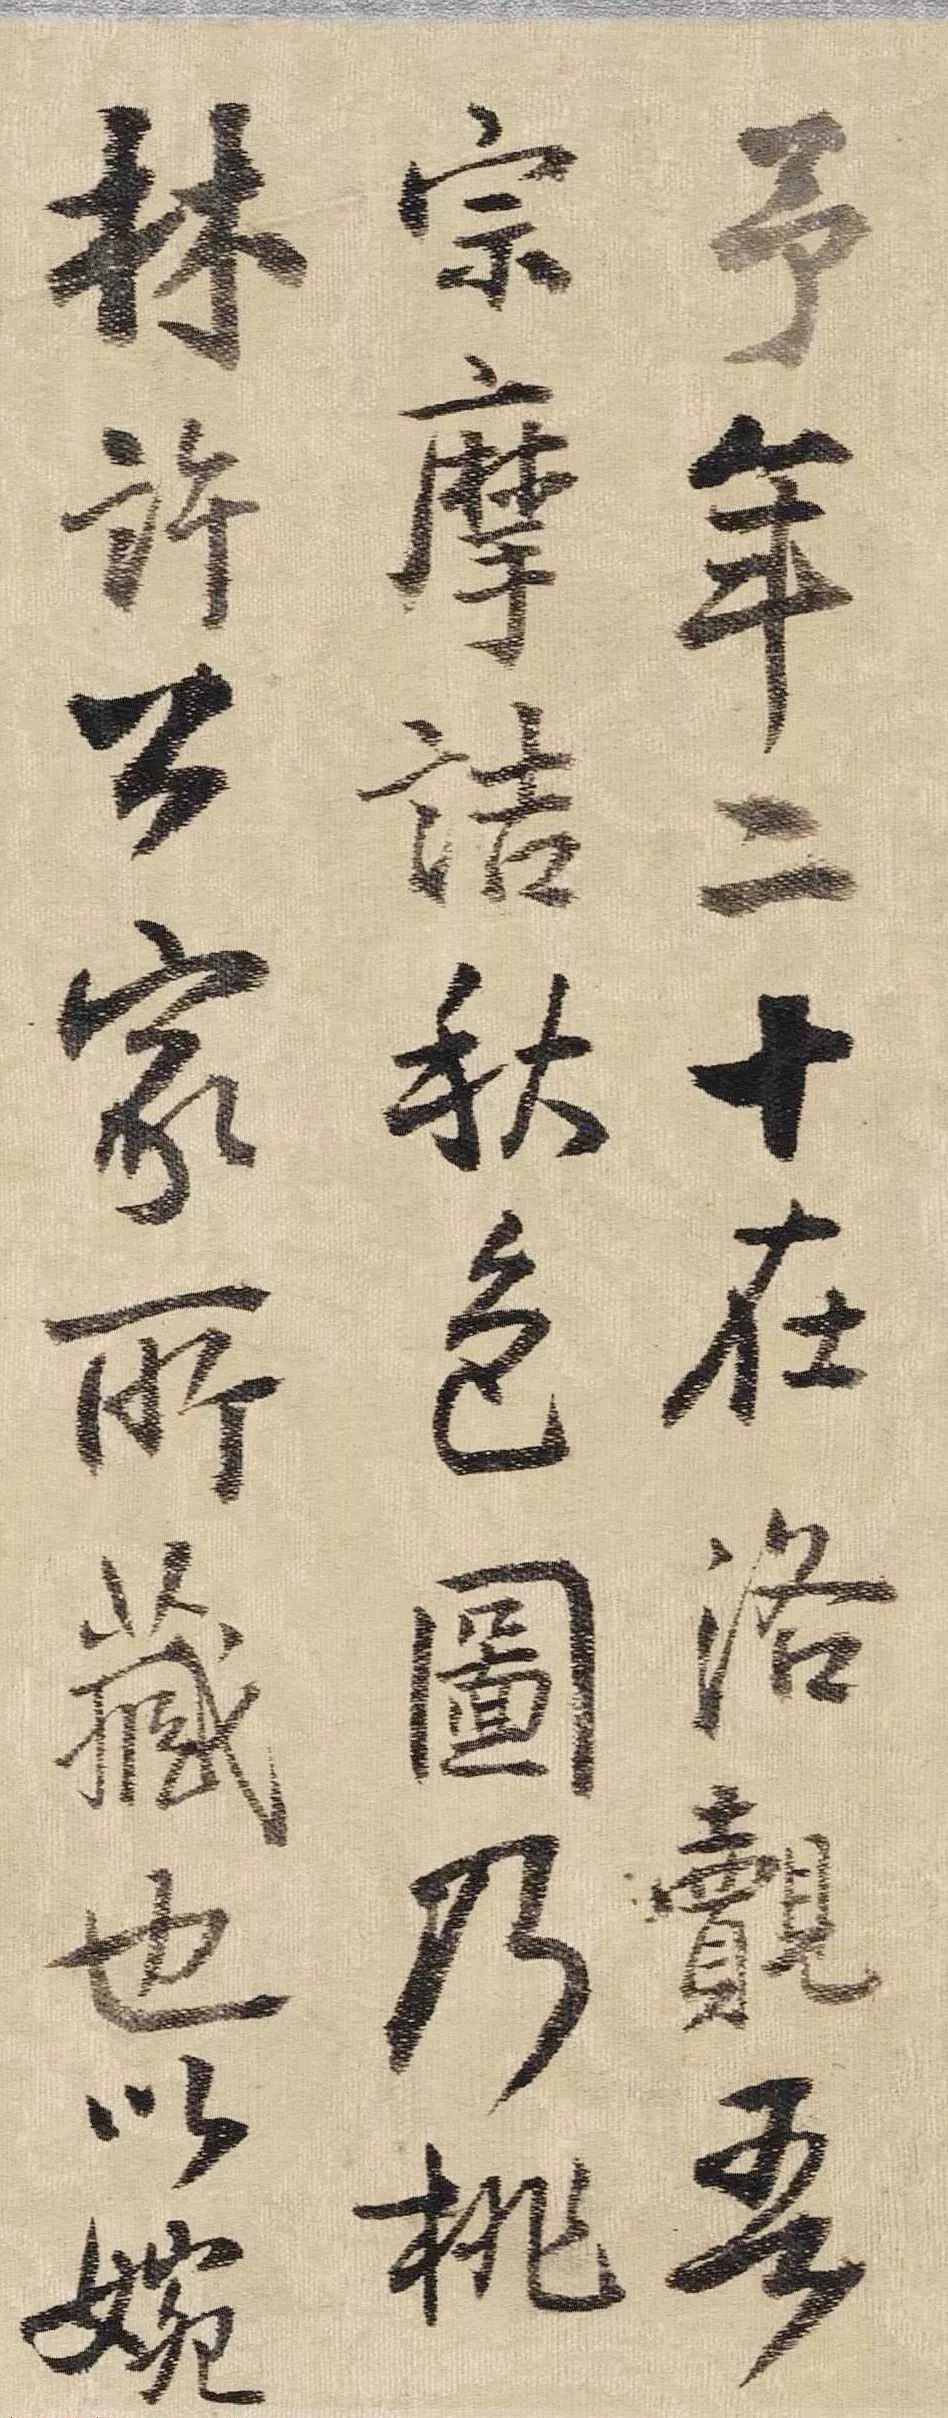 予年二十在洛覿吾
宗摩詰秋色圖乃桃
林許公家所藏也以婉